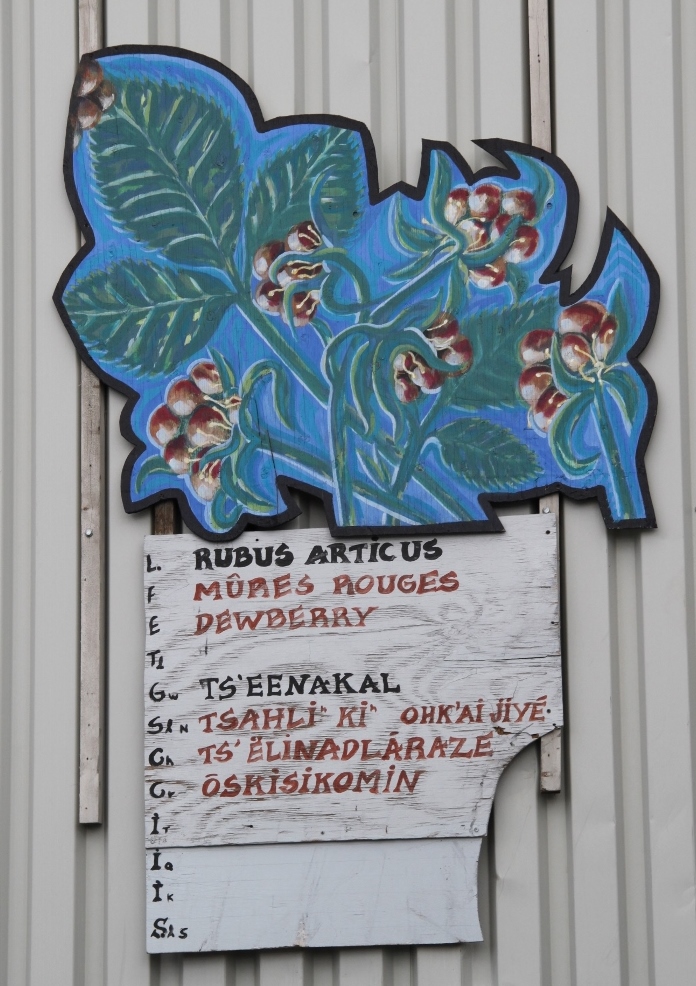 L. RUBUS ARTICUS
F MÛRES ROUGES
E DEWBERRY
Tł
Gw TS'EENAKAL
Sł N TSAHLIⁿ KIⁿ OHK'AI JIYÉ
Ch TS'ËLINADLÁRAZE
Cr ÔSKISIKOMIN
Ir
Iq
Ik
Sł S